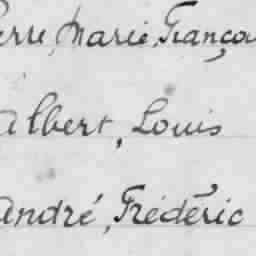 erre, Marie, Françoi
Albert, Louis
André, Frédéric